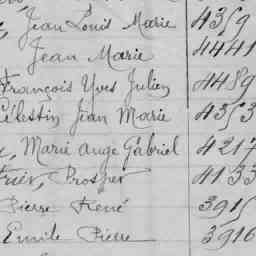 , Jean Louis Marie 4359
Jean Marie 4441
François Yves Julien 4489
Célestin Jean Marie 4353
, Marie Ange Gabriel 4217
Prosper 4133
Pierre René 3915
Emile Pierre 3916